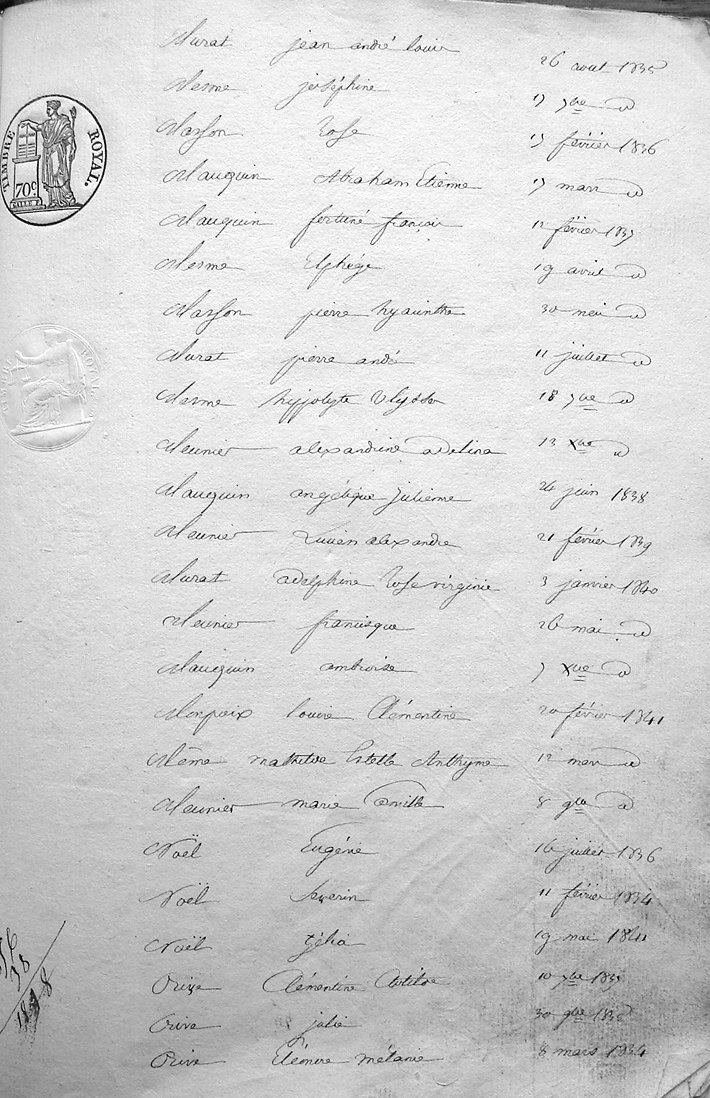 Murat jean andré louis 26 aout 1835
Mesme joséphine 17 7bre d
Masson Rose 17 février 1836
Mauquin Abraham Etienne 17 mars d
TIMBRE ROYAL.
70c
Mauquin fortuné françois 12 février 1837
Mesme Elphége 19 avril d
Masson pierre hyacinthe 30 mai d
Murat pierre andré 11 juillet d
Mesme hyppolyte Ulysse 18 7bre d
Meunier alexandrine adelina 13 Xbre d
Mauquin angélique julienne 24 juin 1838
Meunier Lucien alexandre 21 février 1839
Murat adelphine Rose virginie 3 janvier 1840
Meunier francisque 26 mai d
Mauquin ambroise 7 Xbre d
Monpaix louise Clémentine 20 février 1841
Même mathilde Estelle Anthyme 12 mars d
Meunier marie Camille 8 9bre d
Noël Eugénie 16 juillet 1836
Noël Severin 11 février 1834
Noël Zélia 19 mai 1841
Orive Clémentine Clotilde 10 7bre
Orive julie 30 9bre
Orive Eléonore mélanie 8 mars 1834